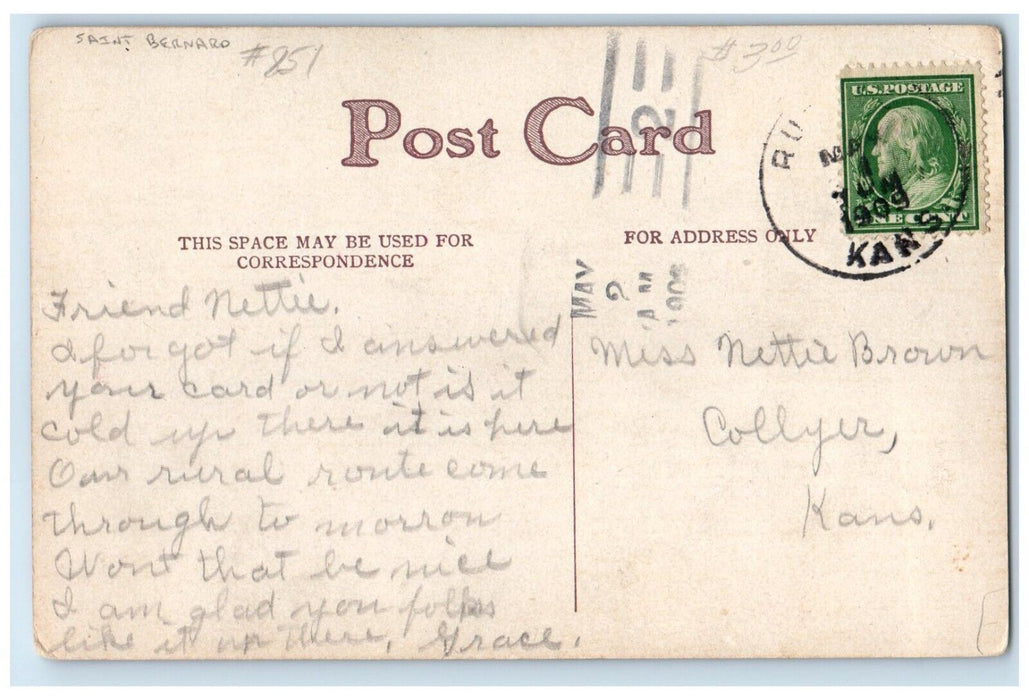 SAINT BERNARD
#851
$3.00
Post Card
U.S. POSTAGE
RU
MA
1909
KANS
THIS SPACE MAY BE USED FOR
CORRESPONDENCE
FOR ADDRESS ONLY
MAY
2
AM
190
Friend Nettie.
I for got if I answered
your card or not is it
cold up there it is here
Our rural route come
through to morrow
Wont that be nice
I am glad you folks
like it up there, Grace.
Miss Nettie Brown
Collyer,
Kans.